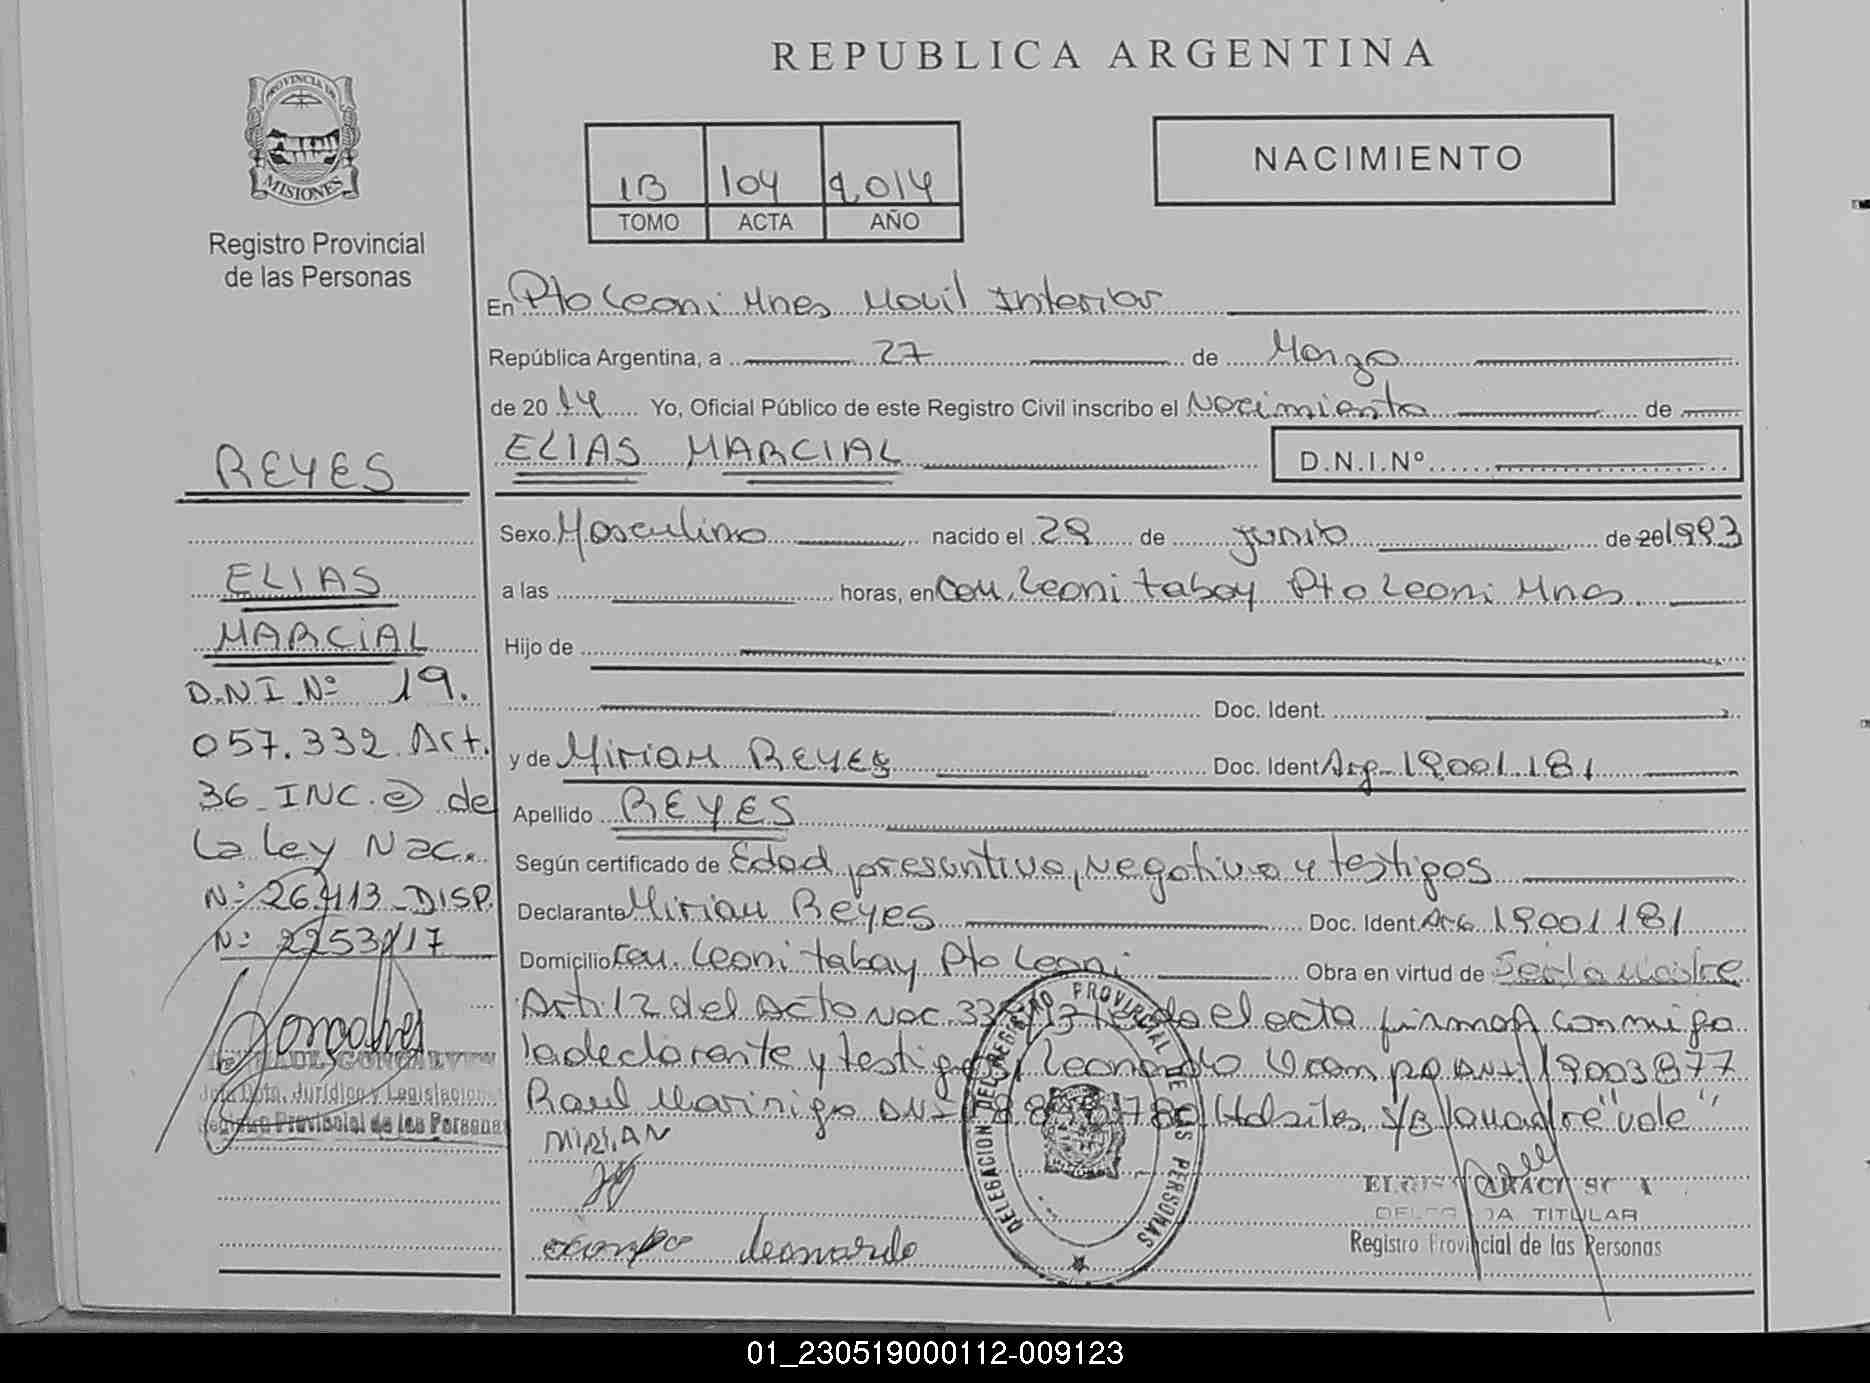 REPUBLICA ARGENTINA
PROVINCIA DE
MISIONES
Registro Provincial
de las Personas
NACIMIENTO
1B 104 2.014
TOMO ACTA AÑO
En Pto Leoni Mnes Movil Interior
República Argentina, a 27 de Marzo
de 20 14 Yo, Oficial Público de este Registro Civil inscribo el Nacimiento de
ELIAS MARCIAL D.N.I.Nº
Sexo Masculino nacido el 28 de junio de 20 1993
a las horas, en Com. Leoni tabay Pto Leoni Mnes
Hijo de
Doc. Ident.
y de Miriam REYES Doc. Ident Arg 19001181
Apellido REYES
Según certificado de Edad presuntiva, Negativa y testigos
Declarante Miriam Reyes Doc. Ident. Arg 19001181
Domicilio Com. Leoni tabay Pto Leoni Obra en virtud de
Art 12 del Acta Nac. leída el acta firman conmigo
la declarante y testigos Leonardo Ocampo DNI 19003877
Raul Marinigo DNI S/B la madre "vale"
MIRIAN
ocampo leonardo
DELEGACION DEL REGISTRO PROVINCIAL DE LAS PERSONAS
TITULAR
Registro Provincial de las Personas
REYES
ELIAS
MARCIAL
D.N.I Nº 19.
057.332 Art.
36 INC. e de
La Ley Nac.
Nº 26.413 DISP.
Nº 2253/17
Goncalves
RAUL GONCALVES
Dpto. Jurídico y Legislacion
Registro Provincial de las Personas
01_230519000112-009123